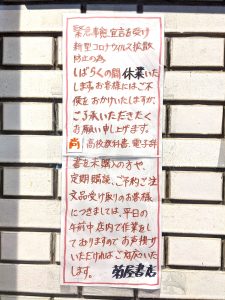 緊急事態宣言を受け
新型コロナウイルス拡散
防止の為
しばらくの間休業いた
します。お客様にはご不
便をおかけいたしますが、
ご了承いただきたく
お願い申し上げます。
高校教科書、電子辞
書を未購入の方や、
定期購読、ご予約ご注
文品受け取りのお客様
につきましては、平日の
午前中店内で作業をし
ておりますのでお声掛け
いただければご対応いた
します。
菊屋書店